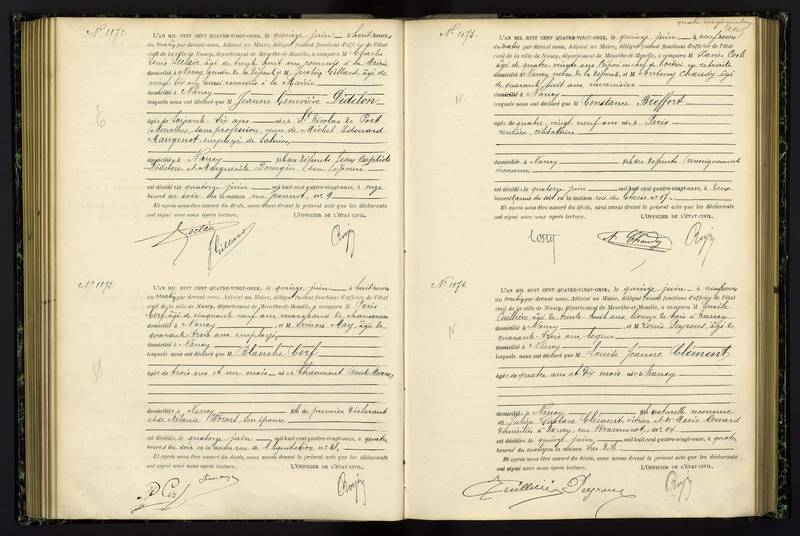 N° 1171.
L'AN MIL HUIT CENT QUATRE-VINGT-ONZE, le quinze juin à huit heures
du matin par devant nous, Adjoint au Maire, délégué faisant fonctions d'officier de l'état
civil de la ville de Nancy, département de Meurthe-et-Moselle, a comparu M Charles
Louis Leclair âgé de vingt huit ans, commis à la Mairie
domicilié à Nancy, gendre de la défunte et M Justin Gillard, âgé de
vingt six ans aussi commis à la Mairie
domicilié à Nancy
lesquels nous ont déclaré que M Jeanne Geneviève Didelon
âgée de soixante six ans née à St Nicolas de Port
(Meurthe), sans profession, veuve de Michel Edouard
Mangenot, employé de Salines,
domiciliée à Nancy fille des défunts Jean Baptiste
Didelon et Marguerite son épouse
est décédée le quatorze juin mil huit cent quatre-vingt-onze, à onze
heures du soir en la maison rue Jeannot, n° 9
Et après nous être assuré du décès, nous avons dressé le présent acte que les déclarants
ont signé avec nous après lecture. L'OFFICIER DE L'ÉTAT CIVIL,
Leclair
Gillard
N° 1172
L'AN MIL HUIT CENT QUATRE-VINGT-ONZE, le quinze juin à huit heures
du matin par devant nous, Adjoint au Maire, délégué faisant fonctions d'officier de l'état
civil de la ville de Nancy, département de Meurthe-et-Moselle, a comparu M
Cerf, âgé de cinquante neuf ans marchand de chaussures
domicilié à Nancy et M Simon May, âgé de
quarante trois ans employé,
domicilié à Nancy
lesquels nous ont déclaré que M Blanche Cerf
âgée de trois ans et un mois née à Chaumont (Haute Marne)
domiciliée à Nancy fille du premier déclarant
et de Mélanie Worms, son épouse
est décédée le quatorze juin mil huit cent quatre-vingt-onze, à quatre
heures du soir en la maison rue de l'équitation, n°
Et après nous être assuré du décès, nous avons dressé le présent acte que les déclarants
ont signé avec nous après lecture. L'OFFICIER DE L'ÉTAT CIVIL,
Cerf
quatre vingt quatorze
N° 1173.
L'AN MIL HUIT CENT QUATRE-VINGT-ONZE, le quinze juin à neuf heures
du matin par devant nous, Adjoint au Maire, délégué faisant fonctions d'officier de l'état
civil de la ville de Nancy, département de Meurthe-et-Moselle, a comparu M
âgé de quatre vingts ans, en retraite
domicilié à Nancy, neveu de la défunte, et M Antony Chaudy âgé
de quarante huit ans, menuisier
domicilié à Nancy
lesquels nous ont déclaré que M Constance Breffort
âgée de quatre vingt neuf ans née à Paris
rentière, célibataire
domiciliée à Nancy fille des défunts (renseignement
inconnu)
est décédée le quatorze juin mil huit cent quatre-vingt-onze, à deux
heures du soir en la maison rue n° 17.
Et après nous être assuré du décès, nous avons dressé le présent acte que les déclarants
ont signé avec nous après lecture. L'OFFICIER DE L'ÉTAT CIVIL,
A. Chaudy
N° 1174.
L'AN MIL HUIT CENT QUATRE-VINGT-ONZE, le quinze juin à neuf heures
du matin par devant nous, Adjoint au Maire, délégué faisant fonctions d'officier de l'état
civil de la ville de Nancy, département de Meurthe-et-Moselle, a comparu M Emile
âgé de trente huit ans, à Nancy
domicilié à Nancy et M Louis Peyroux, âgé de
quarante trois ans
domicilié à Nancy
lesquels nous ont déclaré que M Louise Jeanne Clément
âgée de quatre ans et dix mois née à Nancy
domiciliée à Nancy fille naturelle reconnue
de Julien Gustave Clément, vitrier et de Marie Renard
domiciliés à Nancy, rue Braconnot, n° 14
est décédée le quinze juin mil huit cent quatre-vingt-onze, à quatre
heures du matin en la maison
Et après nous être assuré du décès, nous avons dressé le présent acte que les déclarants
ont signé avec nous après lecture. L'OFFICIER DE L'ÉTAT CIVIL,